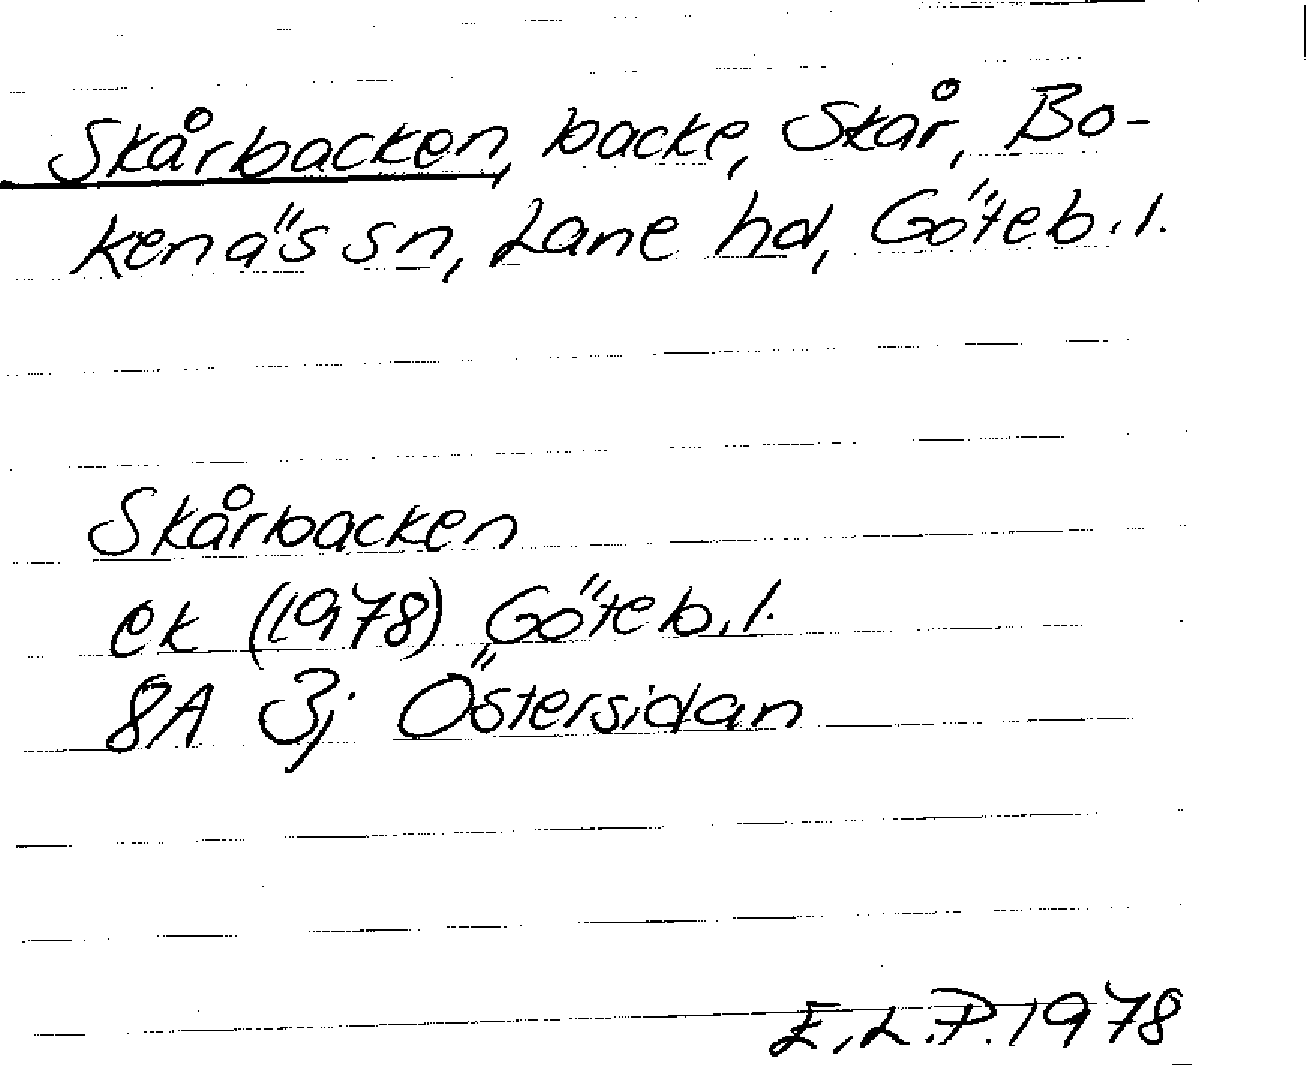 Skårbacken, backe, Skår, Bo-
kenäs sn, Lane hd, Göteb.l.
Skårbacken
ek (1978) Göteb.l.
8A 3j Östersidan
E.L.P. 1978